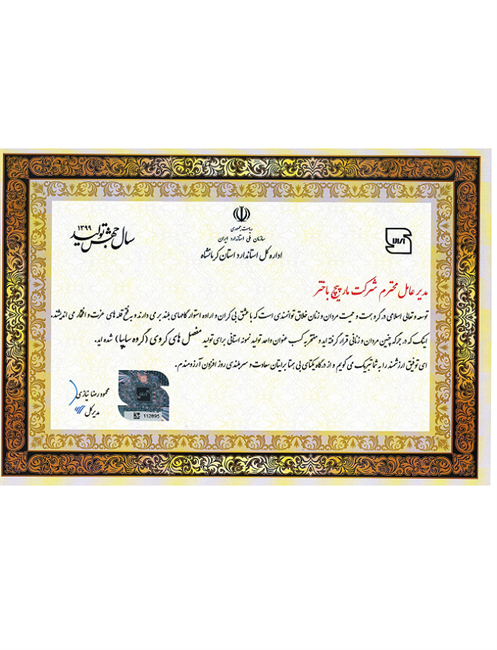 ریاست جمهوری
سازمان ملی استاندارد ایران
اداره کل استاندارد استان کرمانشاه
سال جهش تولید
۱۳۹۹
مدیر عامل محترم شرکت مارپیچ باختر
توسعه و تعالی اسلامی در گرو همت و مردان و زنان خلاق توانمندی است که با عشق بی کران و اراده استوار گامهای بلند بر می دارند و به فتح قله های عزت و افتخار می اندیشند.
اینک که در جرگه چنین مردان و زنانی قرار گرفته اید و مفتخر به کسب عنوان واحد تولید نمونه استانی برای تولید مفصل های کروی (گروه سایپا) شده اید.
این توفیق ارزشمند را به شما تبریک می گویم و از درگاه یکتای بی همتا برایتان سعادت و سربلندی روز افزون آرزومندم.
محمودرضا نیازی
مدیرکل
112695